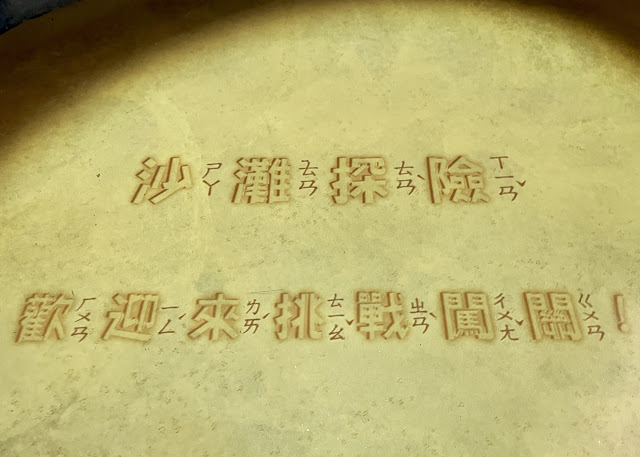 沙ㄕㄚ灘ㄊㄢ探ㄊㄢˋ險ㄒㄧㄢˇ
歡ㄏㄨㄢ迎ㄧㄥˊ來ㄌㄞˊ挑ㄊㄧㄠˇ戰ㄓㄢˋ闖ㄔㄨㄤˇ關ㄍㄨㄢ！